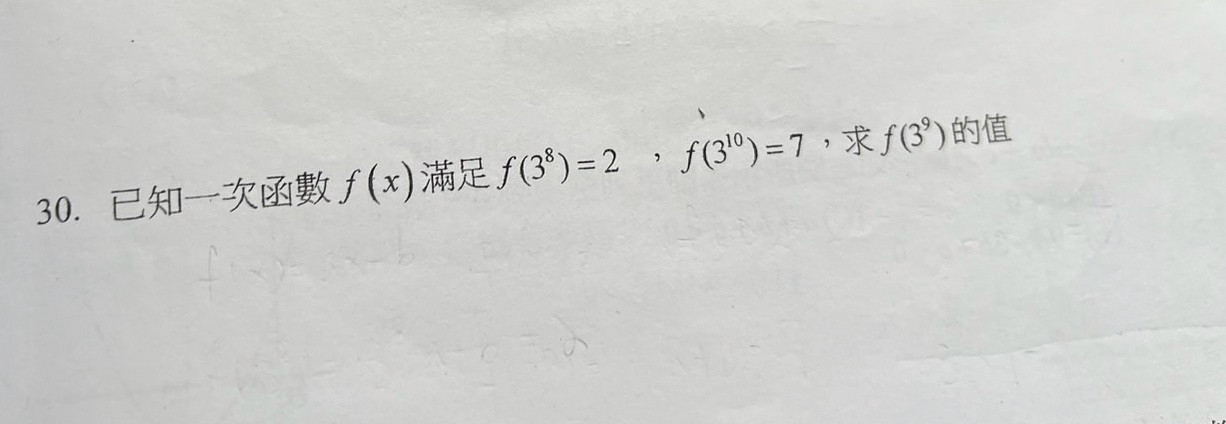 30. 已知一次函數 f(x) 滿足 f(3⁸)=2 , f(3¹⁰)=7,求 f(3⁹) 的值